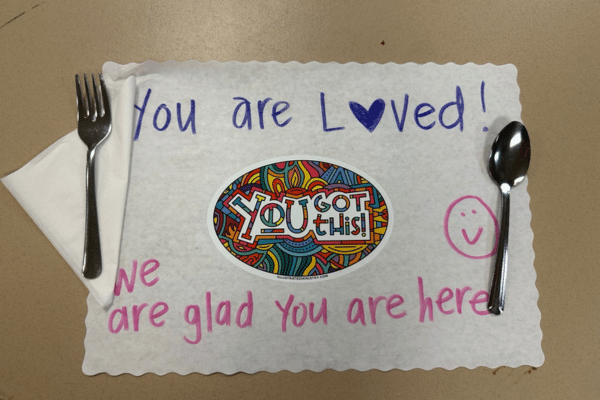 You are Loved!
YOU GOT
this!
we
are glad you are here